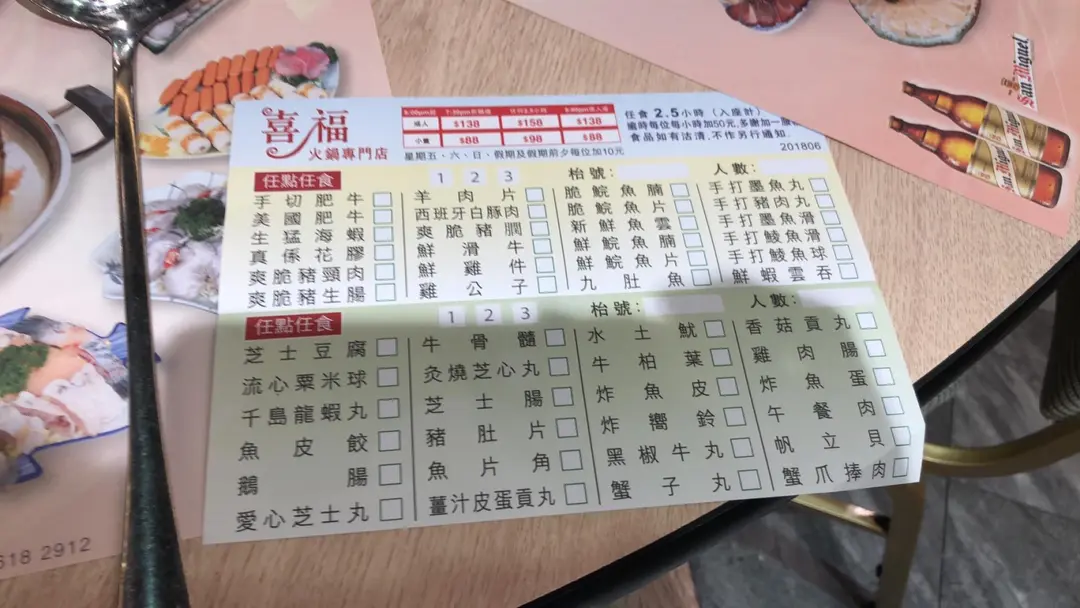 喜福
火鍋專門店
6:00pm起 7:30pm折檯價 任何2.5小時 9:00pm後入場
成人 $138 $158 $138
小童 $88 $98 $88
星期五、六、日、假期及假期前夕每位加10元
任食 2.5小時 (入座計)
逾時每位每小時加50元,多謝加一
食品如有沽清,不作另行通知.
201806
任點任食 1 2 3 枱號: 人數:
手切肥牛 羊肉片 脆鯇魚腩 手打墨魚丸
美國肥牛 西班牙白豚肉 脆鯇魚片 手打豬肉丸
生猛海蝦 爽脆豬膶 新鮮魚雲 手打墨魚滑
真係花膠 鮮滑牛 鮮鯇魚腩 手打鯪魚滑
爽脆豬頸肉 鮮雞件 鮮鯇魚片 手打鯪魚球
爽脆豬生腸 雞公子 九肚魚 鮮蝦雲吞
任點任食 1 2 3 枱號: 人數:
芝士豆腐 牛骨髓 水土魷 香菇貢丸
流心粟米球 灸燒芝心丸 牛柏葉 雞肉腸
千島龍蝦丸 芝士腸 炸魚皮 炸魚蛋
魚皮餃 豬肚片 炸嚮鈴 午餐肉
鵝腸 魚片角 黑椒牛丸 帆立貝
愛心芝士丸 薑汁皮蛋貢丸 蟹子丸 蟹爪捧肉
San Miguel
318 2912